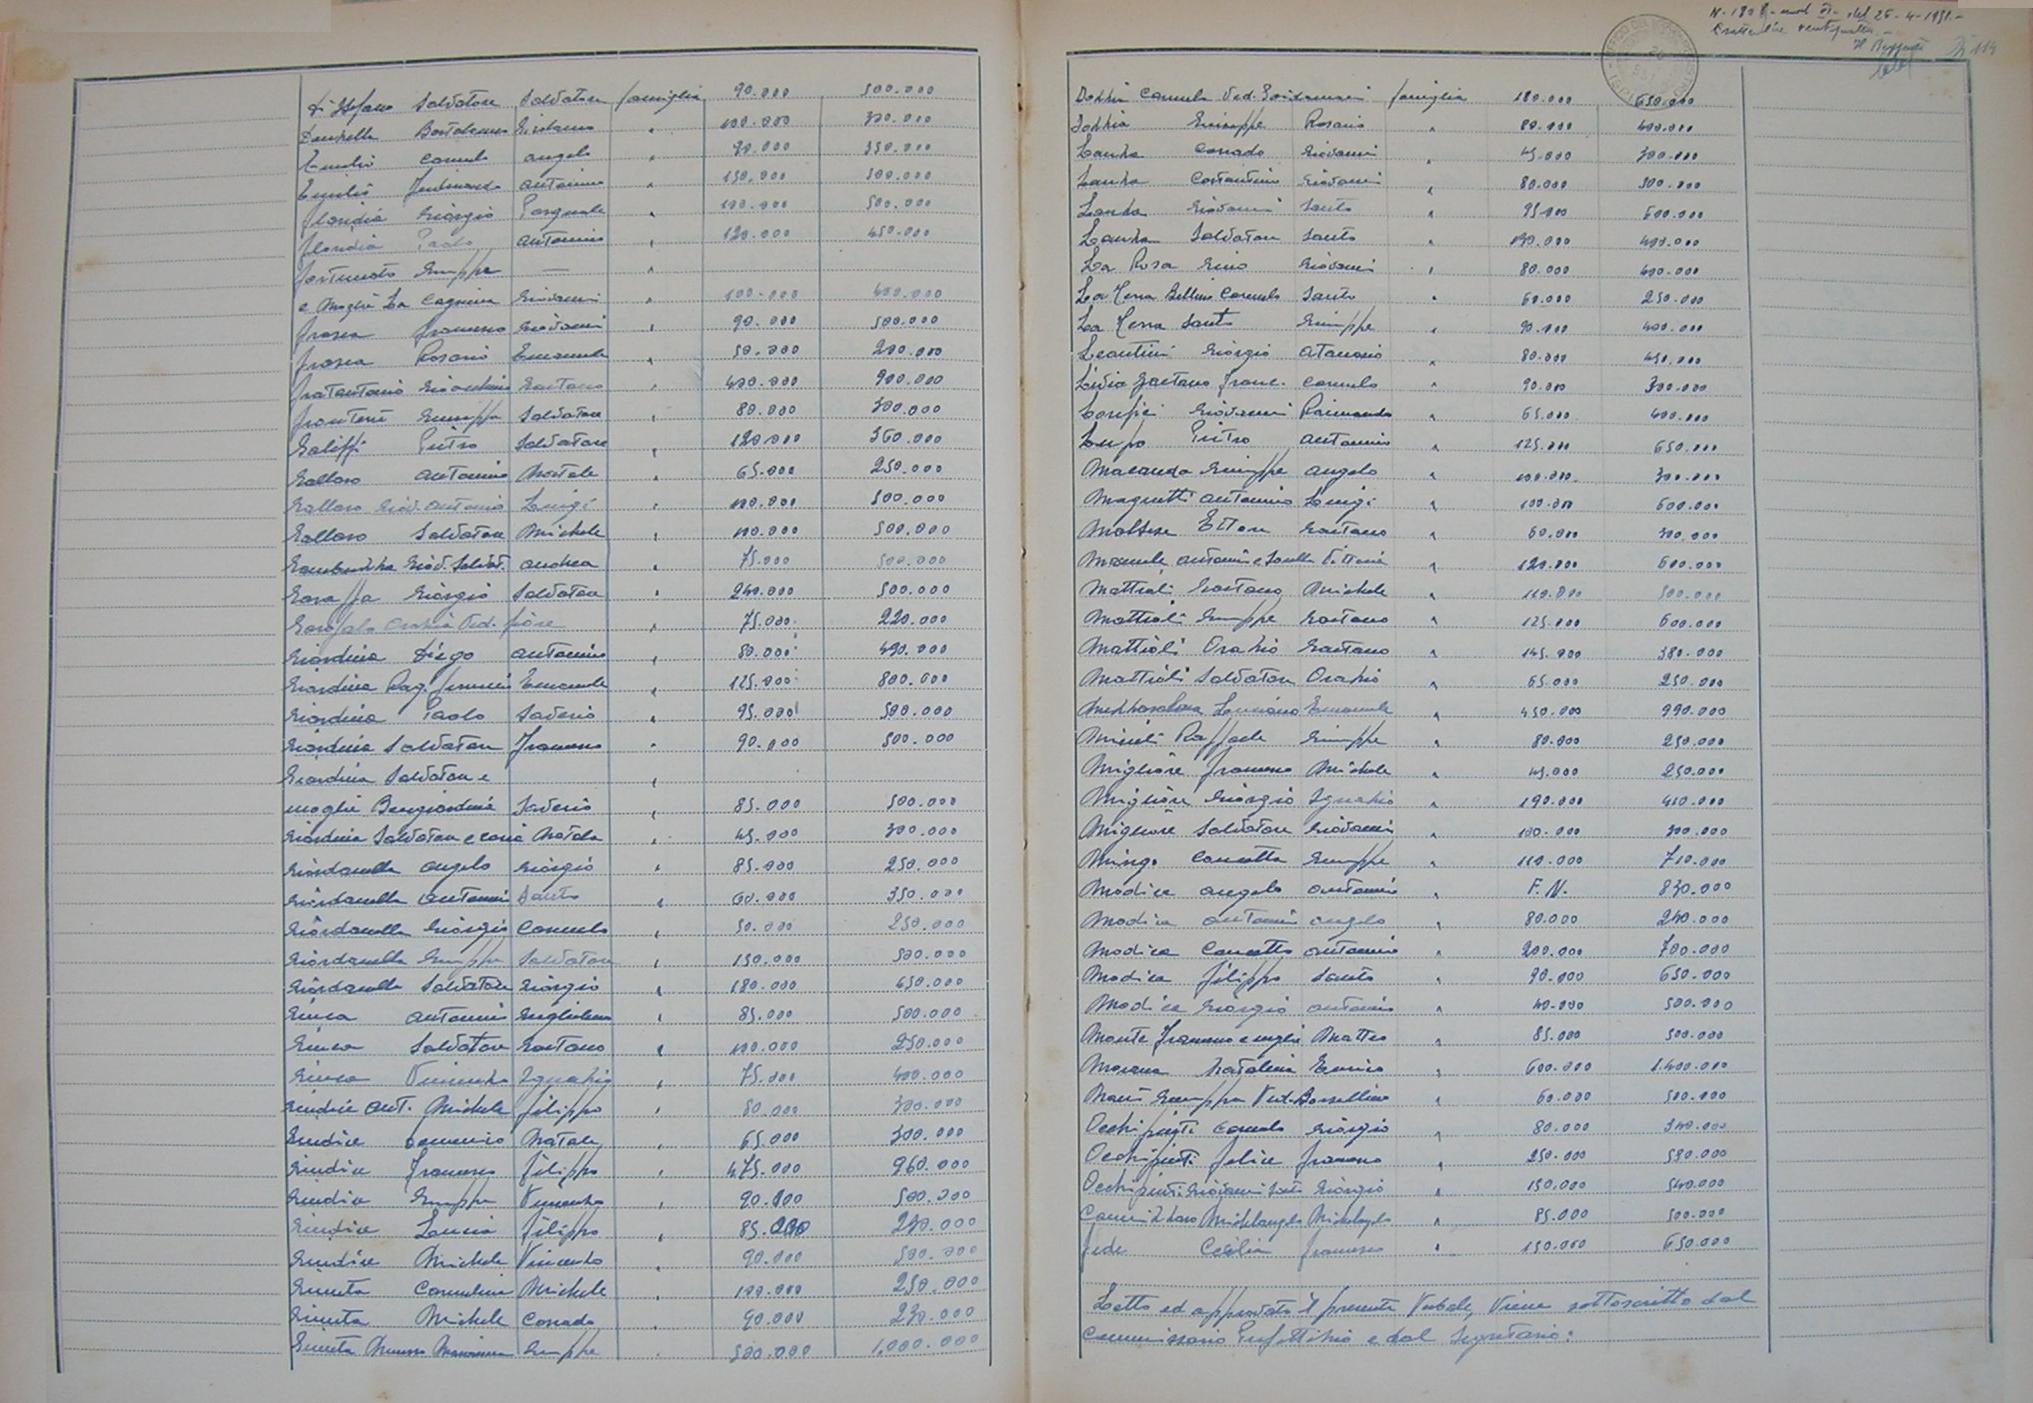 N. 1808 - mod VI - del 26-4-1951.-
N 114
Di Stefano Salvatore Salvatore famiglia 90.000 500.000
Bartolomeo Girolamo " 100.000 320.000
Emilio Carmelo Angelo " 90.000 350.000
Emilio Ferdinando Antonino " 150.000 500.000
Floridia Giorgio Pasquale " 100.000 500.000
Floridia Paolo Antonino " 120.000 450.000
Fortunato Giuseppe — "
e moglie La Cognina Giovanni " 100.000 400.000
Frasca Francesco Giovanni " 90.000 500.000
Frasca Rosario Emanuele " 50.000 200.000
Fratantonio Gioachino Gaetano " 400.000 900.000
Fronterrè Giuseppa Salvatore " 80.000 300.000
Galiffi Pietro Salvatore " 120.000 360.000
Galloro Antonino Natale " 65.000 250.000
Galloro Giov. Antonio Luigi " 100.000 500.000
Galloro Salvatore Michele " 100.000 500.000
Gambuzza Giov. Salvat. Andrea " 75.000 500.000
Garaffa Giorgio Salvatore " 240.000 500.000
Garofalo Orazia Ved. Fiore " 75.000 220.000
Giardina Diego Antonino " 80.000 490.000
Giardina Rag. Emanuele " 125.000 800.000
Giardina Paolo Saverio " 95.000 500.000
Giardina Salvatore Francesco " 90.000 500.000
Giardina Salvatore e "
moglie Bongiardina Saverio " 85.000 500.000
Giardina Salvatore e Natale " 45.000 300.000
Giordanella Angelo Giorgio " 85.000 250.000
Giordanella Antonino Santo " 60.000 350.000
Giordanella Giorgio Carmelo " 50.000 250.000
Giordanella Giuseppe Salvatore " 150.000 500.000
Giordanella Salvatore Giorgio " 180.000 650.000
Giuca Antonino Guglielmo " 85.000 500.000
Giuca Salvatore Gaetano " 100.000 250.000
Giuca Vincenzo Ignazio " 75.000 400.000
Giudice Ant. Michele Filippo " 80.000 300.000
Giudice Domenico Natale " 65.000 300.000
Giudice Francesco Filippo " 475.000 960.000
Giudice Giuseppe Vincenzo " 90.000 500.000
Giudice Lucia Filippo " 85.000 240.000
Giudice Michele Vincenzo " 90.000 500.000
Giunta Carmelina Michele " 100.000 250.000
Giunta Michele Corrado " 90.000 230.000
Giunta Giuseppe " 500.000 1.000.000
Iozzia Carmela Ved. famiglia 180.000 650.000
Iozzia Giuseppe Rosario " 80.000 400.000
Lauka Corrado Giovanni " 45.000 300.000
Lauka Costantino Giovanni " 80.000 300.000
Lauka Giovanni Santo " 95.000 600.000
Lauka Salvatore Santo " 190.000 400.000
La Rosa Gino Giovanni " 80.000 400.000
La Terra Bellino Carmelo Santo " 60.000 250.000
La Terra Santo Giuseppe " 90.000 400.000
Leontini Giorgio Atanasio " 80.000 450.000
Livia Gaetano Franc. Carmelo " 90.000 300.000
Giovanni Raimondo " 65.000 400.000
Lupo Pietro Antonino " 125.000 650.000
Macauda Giuseppe Angelo " 100.000 300.000
Magnetti Antonino Luigi " 100.000 600.000
Maltese Ettore Gaetano " 60.000 300.000
Antonino e Vittoria " 120.000 600.000
Mattioli Gaetano Michele " 110.000 500.000
Mattioli Giuseppe Gaetano " 125.000 600.000
Mattioli Orazio Gaetano " 145.000 380.000
Mattioli Salvatore Orazio " 65.000 250.000
Mezzasalma Luciano Emanuele " 450.000 990.000
Raffaele Giuseppe " 80.000 250.000
Migliore Francesco Michele " 45.000 250.000
Migliore Giorgio Ignazio " 190.000 450.000
Migliore Salvatore Giovanni " 100.000 300.000
Mingo Concetta Giuseppe " 110.000 710.000
Modica Angelo Antonino " F.N. 830.000
Modica Antonino Angelo " 80.000 240.000
Modica Concetto Antonino " 200.000 700.000
Modica Filippo Santo " 90.000 650.000
Modica Giorgio Antonino " 40.000 500.000
Monte Francesco e moglie Matteo " 85.000 500.000
Morana Natalina Enrico " 600.000 1.400.000
Giuseppa Ved. Borsellino " 60.000 500.000
Occhipinti Carmelo Giorgio " 80.000 340.000
Occhipinti Felice Francesco " 250.000 580.000
Occhipinti Giovanni Giorgio " 150.000 540.000
Cannizzaro Michelangelo Michelangelo " 85.000 500.000
Fede Cecilia Francesco " 150.000 650.000
Letto ed approvato il presente Verbale, viene sottoscritto dal
Commissario Prefettizio e dal Segretario: